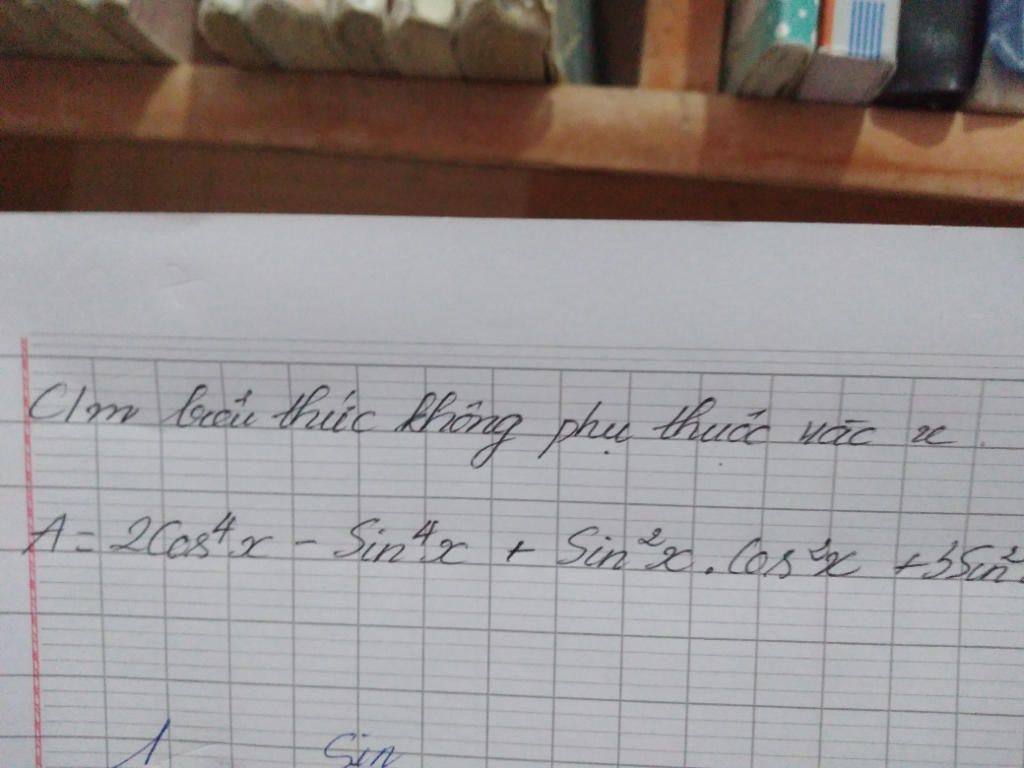 C/m biểu thức không phụ thuộc vào x.
A = 2Cos⁴x - Sin⁴x + Sin²x . Cos²x + 3Sin²
1 Sin